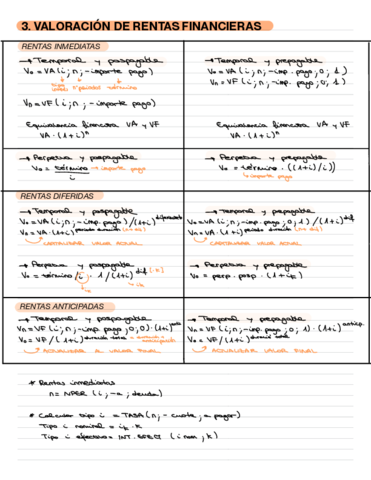 3. VALORACIÓN DE RENTAS FINANCIERAS
RENTAS INMEDIATAS
→ Temporal y pospagable
V₀ = VA (i ; n ; - importe pago)
nº periodos término
V₀ = VF (i ; n ; - importe pago)
Equivalencia financiera VA y VF
VA · (1+i)ⁿ
→ Temporal y prepagable
V₀ = VA (i ; n ; - imp. pago ; 0 ; 1)
Vn = VF (i ; n ; - imp. pago ; 0 ; 1)
Equivalencia financiera VA y VF
VA · (1+i)ⁿ
→ Perpetua y pospagable
V₀ = término → importe pago
i
→ Perpetua y prepagable
V₀ = término · ((1+i)/i)
importe pago
RENTAS DIFERIDAS
→ Temporal y pospagable
V₀ = VA (i ; n ; - imp. pago) / (1+i)
Vn = VA · (1+i)
CAPITALIZAR VALOR ACTUAL
→ Temporal y prepagable
V₀ = VA (i ; n ; - imp. pago ; 0 ; 1) / (1+i)
Vn = VA · (1+i)
CAPITALIZAR VALOR ACTUAL
→ Perpetua y pospagable
V₀ = término / i · 1 / (1+i)
→ Perpetua y prepagable
V₀ = perp. posp. · (1+iₖ)
RENTAS ANTICIPADAS
→ Temporal y pospagable
Vn = VF (i ; n ; - imp. pago ; 0 ; 0) · (1+i)
V₀ = VF / (1+i)
ACTUALIZAR EL VALOR FINAL
→ Temporal y prepagable
Vn = VF (i ; n ; - imp. pago ; 0 ; 1) · (1+i)
V₀ = VF / (1+i)
ACTUALIZAR VALOR FINAL
* Rentas inmediatas
n = NPER (i ; - a ; deuda)
* Calcular tipo i = TASA (n ; - cuota ; a pagar)
Tipo i nominal = iₖ · k
Tipo i efectivo = INT. EFECT (i nom ; k)